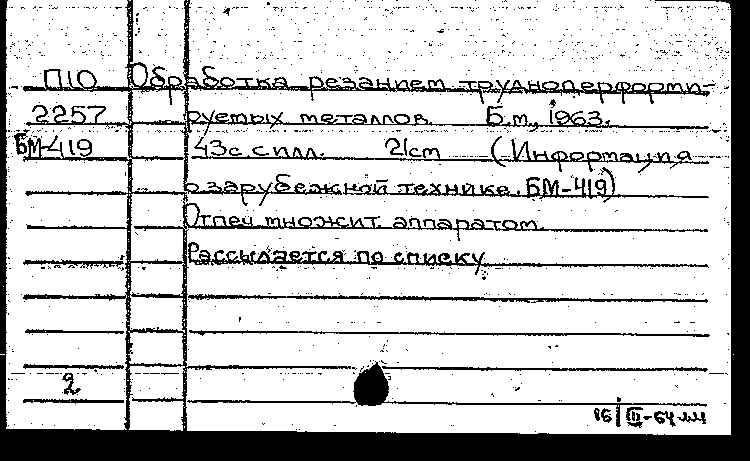 П10 Обработка резанием трудноперформи-
2257 руемых металлов. Б.м., 1963.
БМ-419 43с. с илл. 21cm (Информация
о зарубежной технике. БМ-419)
Отпеч. множит. аппаратом.
Рассылается по списку.
2
16/III-64